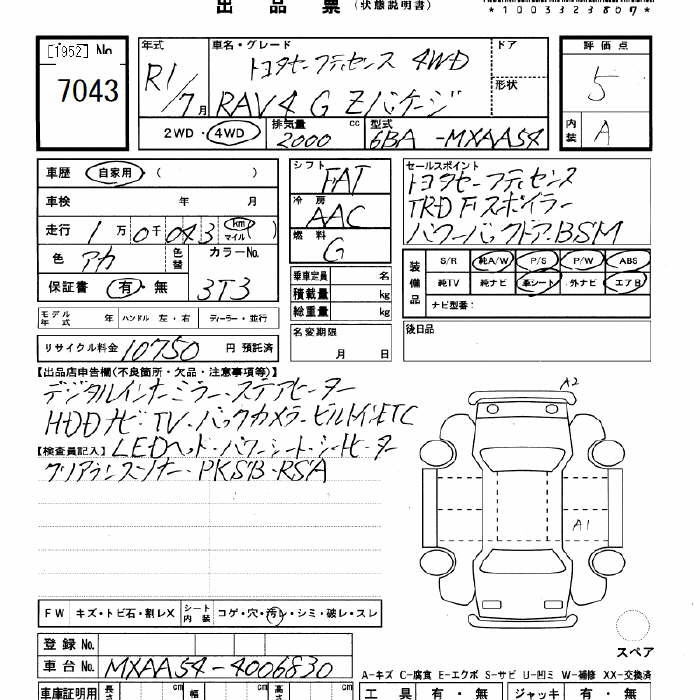 出品票（状態説明書）
*1003323807*
[1952] No
7043
年式
R1/7月
車名・グレード
トヨタセーフティセンス 4WD
RAV4 G Zパッケージ
ドア
形状
2WD・4WD
排気量 cc
2000
型式
6BA-MXAA54
評価点
5
内装
A
車歴 自家用（ ）
車検 年 月
走行 1万0千043 km（マイル）
色 アカ 色替
カラーNo.
3T3
保証書 有・無
モデル年式 年 ハンドル 左・右 ディーラー・並行
リサイクル料金 10750 円 預託済
シフト
FAT
冷房
AAC
燃料
G
乗車定員 名
積載量 kg
総重量 kg
名変期限
月 日
セールスポイント
トヨタセーフティセンス
TRD Fスポイラー
パワーバックドア.BSM
装備品
S/R 純A/W P/S P/W ABS
純TV 純ナビ 革シート 外ナビ エアB
ナビ型番：
後日品
【出品店申告欄(不良箇所・欠品・注意事項等)】
デジタルインナーミラー・ステアヒーター
HDDナビ・TV・バックカメラ・ビルトインETC
【検査員記入】LEDヘッド・パワーシート・シートヒーター
クリアランスソナー・PKSB・RSA
A2
A1
スペア
FW キズ・トビ石・割レX シート内装 コゲ・穴・汚レ・シミ・破レ・スレ
登録 No.
車台 No. MXAA54-4006830
A-キズ C-腐食 E-エクボ S-サビ U-凹ミ W-補修 XX-交換済
車庫証明用 長さ cm 幅 cm 高さ cm
工具 有・無 ジャッキ 有・無